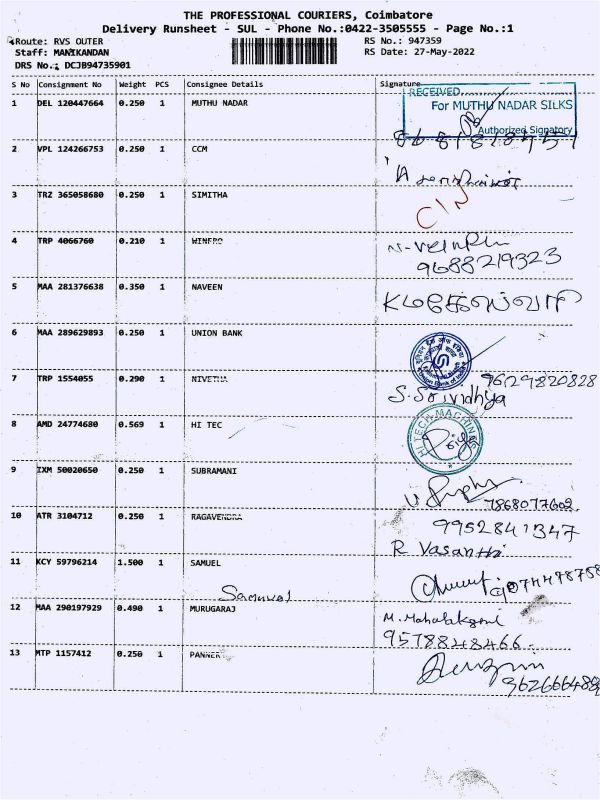 THE PROFESSIONAL COURIERS, Coimbatore
Delivery Runsheet - SUL - Phone No.:0422-3505555 - Page No.:1
Route: RVS OUTER
RS No.: 947359
Staff: MANIKANDAN
RS Date: 27-May-2022
DRS No.: DCJB94735901
S No Consignment No Weight PCS Consignee Details Signature
1 DEL 120447664 0.250 1 MUTHU NADAR
RECEIVED
For MUTHU NADAR SILKS
Authorized Signatory
2 VPL 124266753 0.250 1 CCM
3 TRZ 365058680 0.250 1 SIMITHA
4 TRP 4066760 0.210 1 WINFRO
9688219323
5 MAA 281376638 0.350 1 NAVEEN
6 MAA 289629893 0.250 1 UNION BANK
7 TRP 1554055 0.290 1 NIVETHA 9629820828
S. Srividhya
8 AMD 24774680 0.569 1 HI TEC
HI TECH MACHINES
9 IXM 50020650 0.250 1 SUBRAMANI
7868077602
10 ATR 3104712 0.250 1 RAGAVENDRA
9952841347
R Vasanthi
11 KCY 59796214 1.500 1 SAMUEL
Samuvel
12 MAA 290197929 0.490 1 MURUGARAJ M. Mahalakshmi
9578848466
13 MTP 1157412 0.250 1 PANNER